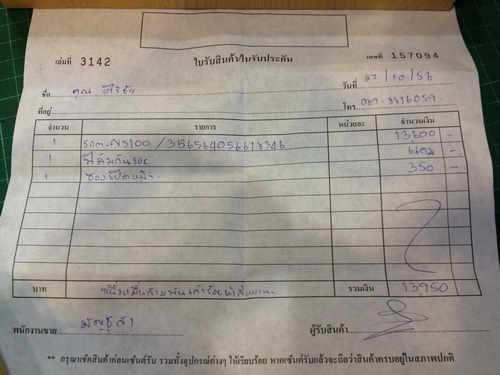 เล่มที่ 3142 ใบรับสินค้า/ใบรับประกัน เลขที่ 157094
ชื่อ คุณ วันที่ 27/10/56
ที่อยู่ โทร.
จำนวน รายการ หน่วยละ จำนวนเงิน
1 13600 -
1 ฟิล์มกันรอย แถม -
1 ซองเปิดหน้า 350 -
บาท หนึ่งหมื่นสามพันเก้าร้อยห้าสิบบาท รวมเงิน 13950
พนักงานขาย ผู้รับสินค้า
** กรุณาเช็คสินค้าก่อนเซ็นต์รับ รวมทั้งอุปกรณ์ต่างๆ ให้เรียบร้อย หากเซ็นต์รับแล้วจะถือว่าสินค้าครบอยู่ในสภาพปกติ